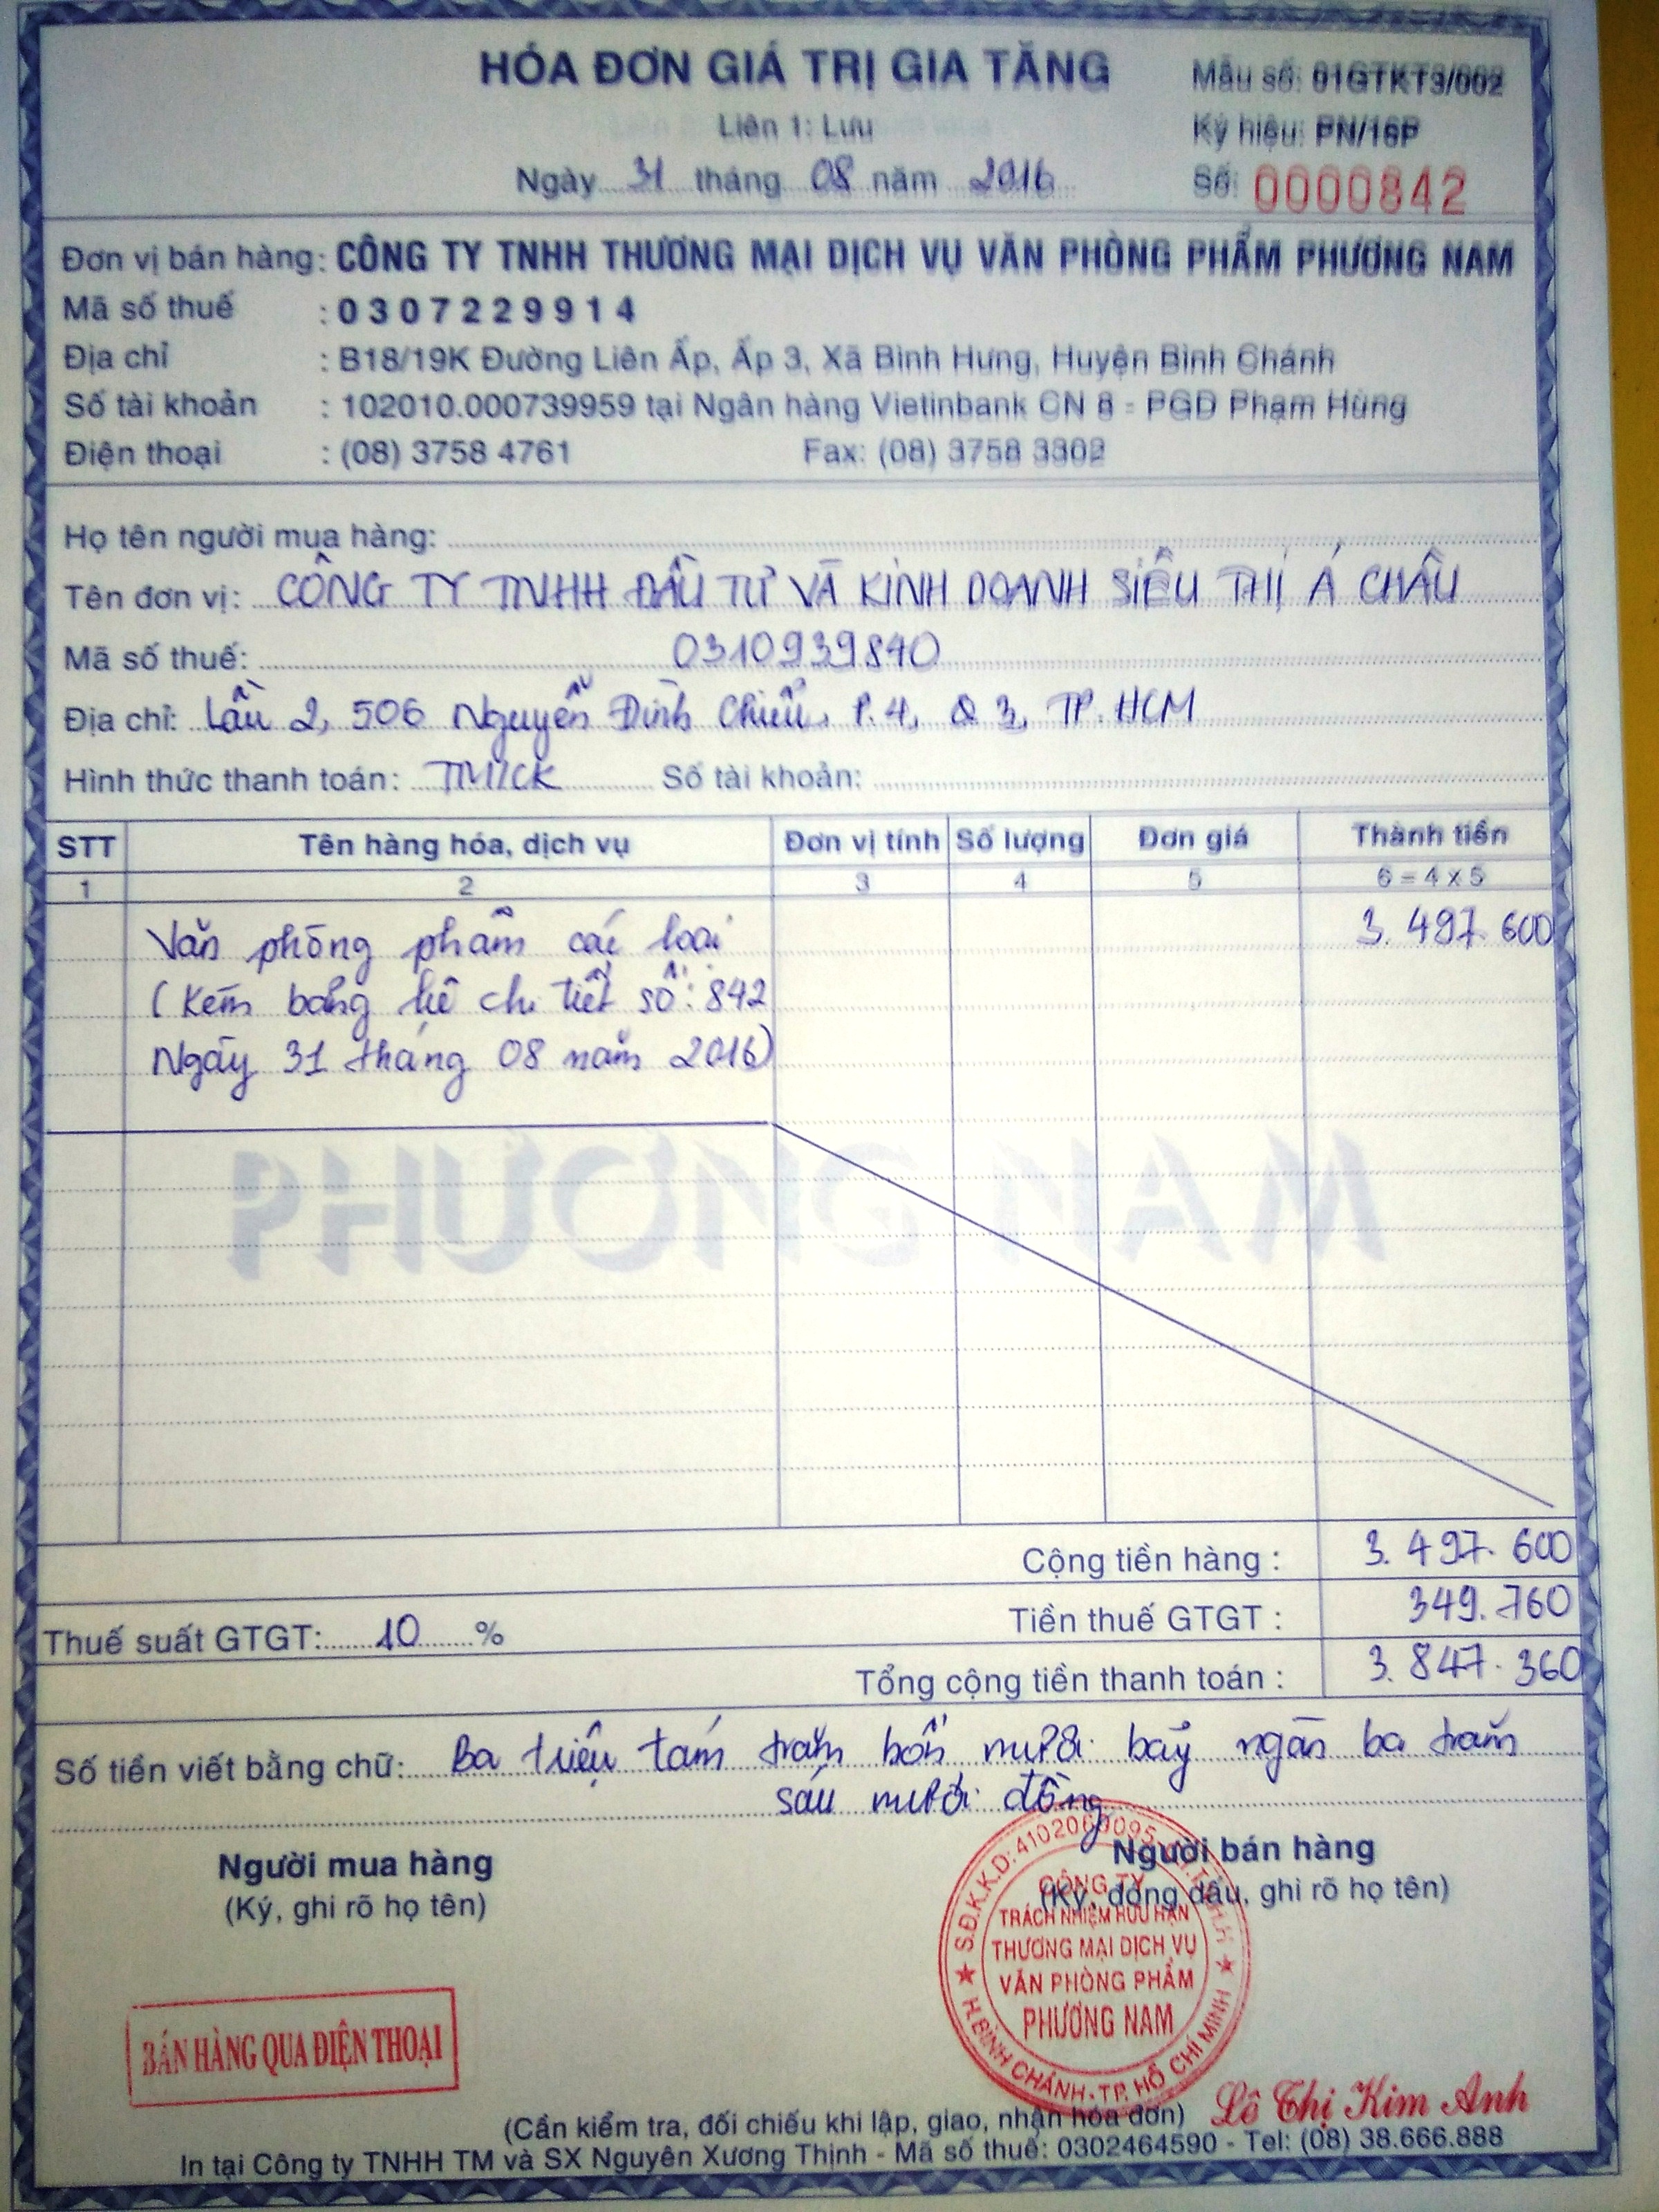 HÓA ĐƠN GIÁ TRỊ GIA TĂNG
Mẫu số: 01GTKT3/002
Liên 1: Lưu
Ký hiệu: PN/16P
Ngày 31 tháng 08 năm 2016
Số: 0000842
Đơn vị bán hàng: CÔNG TY TNHH THƯƠNG MẠI DỊCH VỤ VĂN PHÒNG PHẨM PHƯƠNG NAM
Mã số thuế : 0307229914
Địa chỉ : B18/19K Đường Liên Ấp, Ấp 3, Xã Bình Hưng, Huyện Bình Chánh
Số tài khoản : 102010.000739959 tại Ngân hàng Vietinbank CN 8 - PGD Phạm Hùng
Điện thoại : (08) 3758 4761 Fax: (08) 3758 3302
Họ tên người mua hàng:
Tên đơn vị: CÔNG TY TNHH ĐẦU TƯ VÀ KINH DOANH SIÊU THỊ Á CHÂU
Mã số thuế: 0310939840
Địa chỉ: Lầu 2, 506 Nguyễn Đình Chiểu, P.4, Q 3, TP. HCM
Hình thức thanh toán: TM/CK Số tài khoản:
STT Tên hàng hóa, dịch vụ Đơn vị tính Số lượng Đơn giá Thành tiền
1 2 3 4 5 6 = 4 x 5
Văn phòng phẩm các loại 3.497.600
(Kèm bảng kê chi tiết số: 842
Ngày 31 tháng 08 năm 2016)
PHƯƠNG NAM
Cộng tiền hàng : 3.497.600
Thuế suất GTGT: 10 % Tiền thuế GTGT : 349.760
Tổng cộng tiền thanh toán : 3.847.360
Số tiền viết bằng chữ: Ba triệu tám trăm bốn mươi bảy ngàn ba trăm
sáu mươi đồng
Người mua hàng
(Ký, ghi rõ họ tên)
Người bán hàng
(Ký, đóng dấu, ghi rõ họ tên)
S.Đ.K.K.D:
CÔNG TY
TRÁCH NHIỆM HỮU HẠN
THƯƠNG MẠI DỊCH VỤ
VĂN PHÒNG PHẨM
PHƯƠNG NAM
H.BÌNH CHÁNH-TP. HỒ CHÍ MINH
BÁN HÀNG QUA ĐIỆN THOẠI
Lê Thị Kim Anh
(Cần kiểm tra, đối chiếu khi lập, giao, nhận hóa đơn)
In tại Công ty TNHH TM và SX Nguyên Xương Thịnh - Mã số thuế: 0302464590 - Tel: (08) 38.666.888